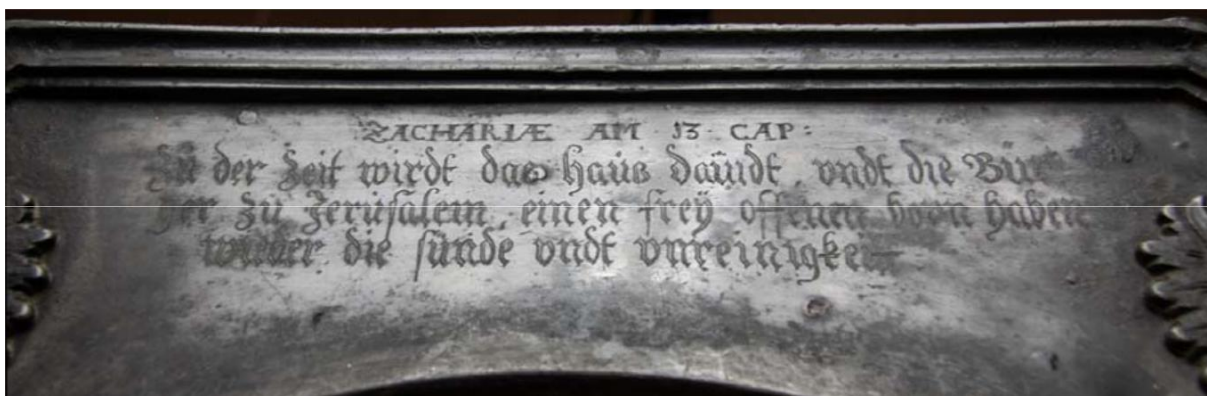 ZACHARIÆ AM 13 CAP:
Zu der Zeit wirdt das haus dauidt, vndt die Bür
ger zu Jerusalem, einen frey offenen born haben
wieder die sünde vndt vnreinigkeit